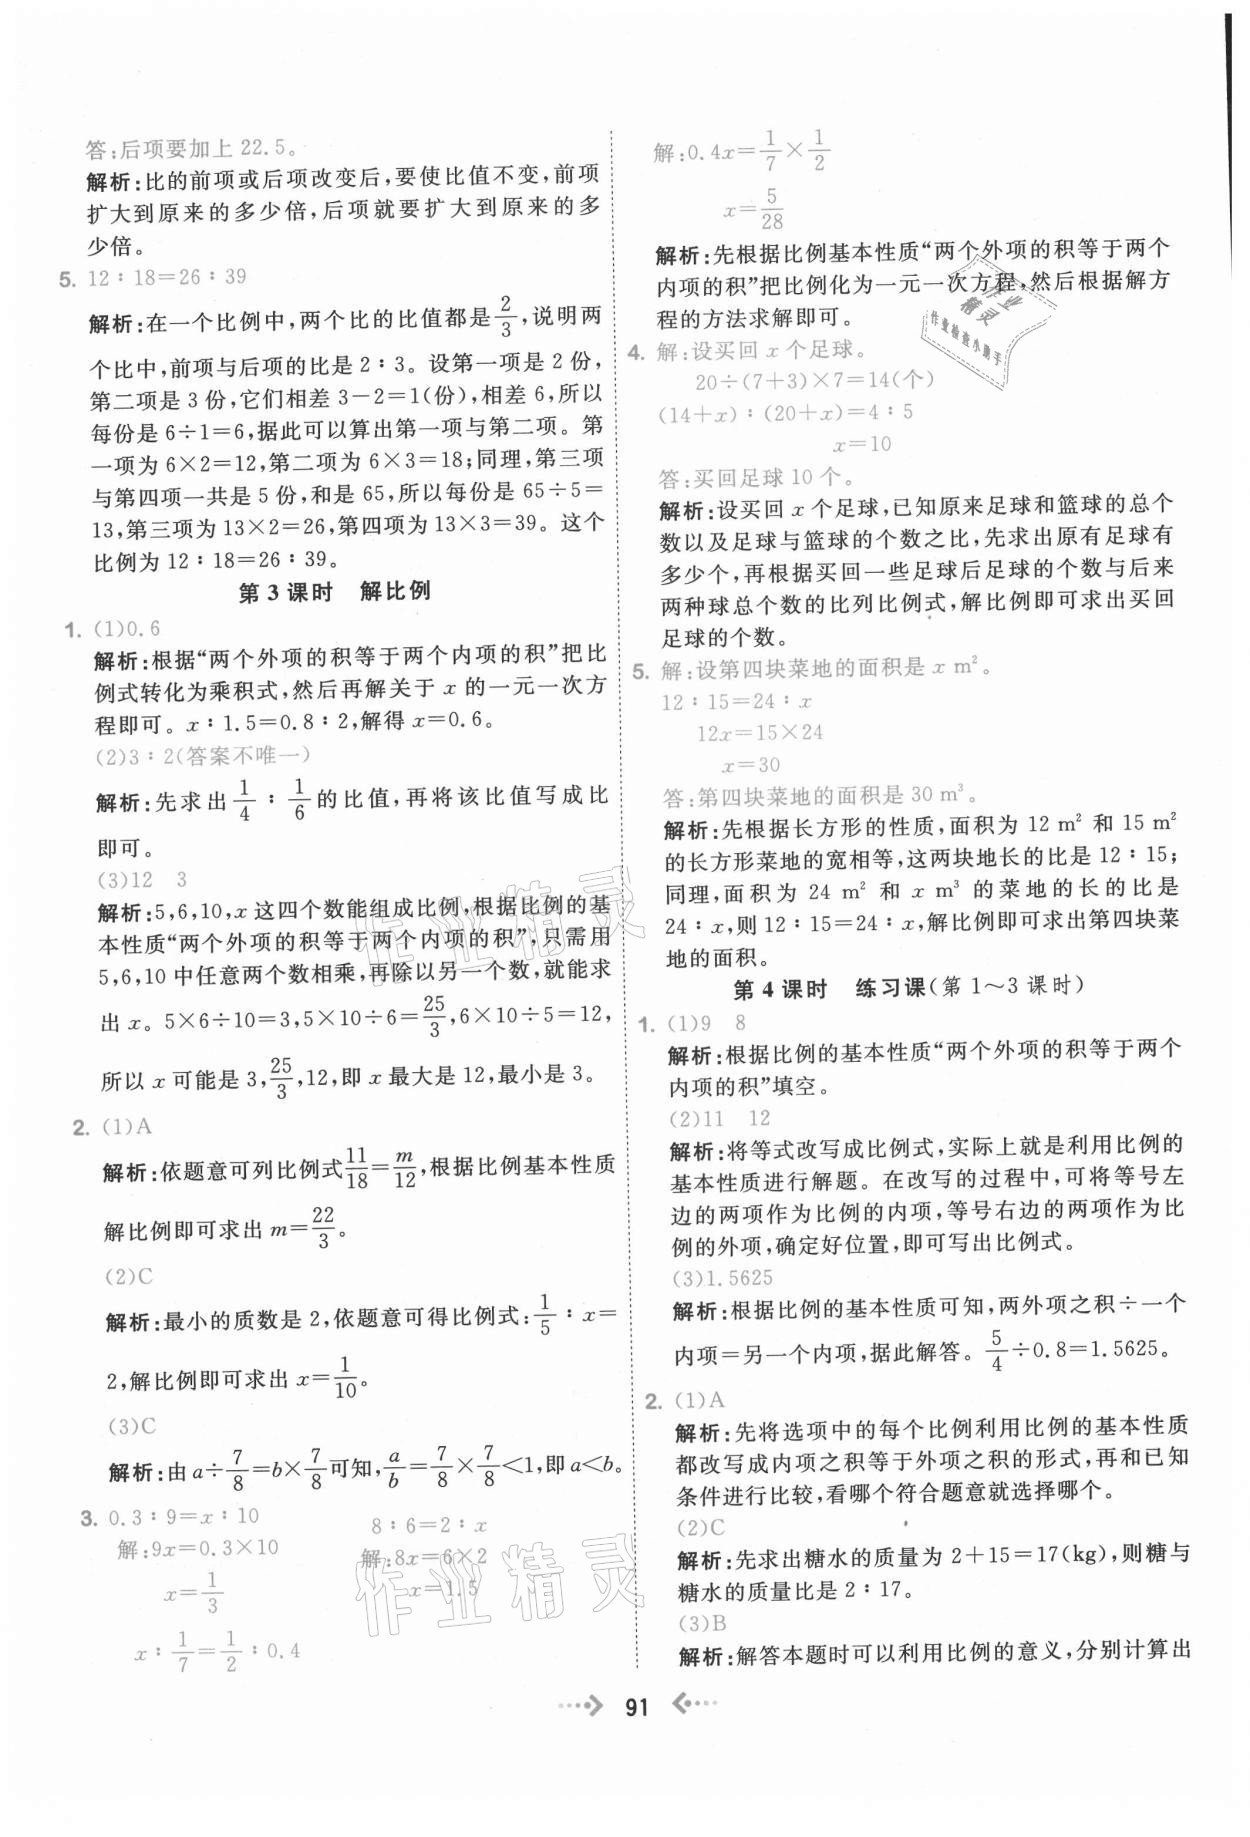 答:后项要加上 22.5。
解析:比的前项或后项改变后,要使比值不变,前项
扩大到原来的多少倍,后项就要扩大到原来的多
少倍。
5. 12∶18=26∶39
解析:在一个比例中,两个比的比值都是2/3,说明两
个比中,前项与后项的比是 2∶3。设第一项是 2 份,
第二项是 3 份,它们相差 3-2=1(份),相差 6,所以
每份是 6÷1=6,据此可以算出第一项与第二项。第
一项为 6×2=12,第二项为 6×3=18;同理,第三项
与第四项一共是 5 份,和是 65,所以每份是 65÷5=
13,第三项为 13×2=26,第四项为 13×3=39。这个
比例为 12∶18=26∶39。
第 3 课时 解比例
1. (1)0.6
解析:根据“两个外项的积等于两个内项的积”把比
例式转化为乘积式,然后再解关于 x 的一元一次方
程即可。x∶1.5=0.8∶2,解得 x=0.6。
(2)3∶2(答案不唯一)
解析:先求出 1/4∶1/6 的比值,再将该比值写成比
即可。
(3)12 3
解析:5,6,10,x 这四个数能组成比例,根据比例的基
本性质“两个外项的积等于两个内项的积”,只需用
5,6,10 中任意两个数相乘,再除以另一个数,就能求
出 x。5×6÷10=3,5×10÷6=25/3,6×10÷5=12,
所以 x 可能是 3,25/3,12,即 x 最大是 12,最小是 3。
2. (1)A
解析:依题意可列比例式11/18=m/12,根据比例基本性质
解比例即可求出 m=22/3。
(2)C
解析:最小的质数是 2,依题意可得比例式:1/5∶x=
2,解比例即可求出 x=1/10。
(3)C
解析:由 a÷7/8=b×7/8可知,a/b=7/8×7/8<1,即 a<b。
3. 0.3∶9=x∶10
解:9x=0.3×10
x=1/3
8∶6=2∶x
解:8x=6×2
x=1.5
x∶1/7=1/2∶0.4
解:0.4x=1/7×1/2
x=5/28
解析:先根据比例基本性质“两个外项的积等于两个
内项的积”把比例化为一元一次方程,然后根据解方
程的方法求解即可。
4. 解:设买回 x 个足球。
20÷(7+3)×7=14(个)
(14+x)∶(20+x)=4∶5
x=10
答:买回足球 10 个。
解析:设买回 x 个足球,已知原来足球和篮球的总个
数以及足球与篮球的个数之比,先求出原有足球有
多少个,再根据买回一些足球后足球的个数与后来
两种球总个数的比列比例式,解比例即可求出买回
足球的个数。
5. 解:设第四块菜地的面积是 x m²。
12∶15=24∶x
12x=15×24
x=30
答:第四块菜地的面积是 30 m³。
解析:先根据长方形的性质,面积为 12 m² 和 15 m²
的长方形菜地的宽相等,这两块地长的比是 12∶15;
同理,面积为 24 m² 和 x m³ 的菜地的长的比是
24∶x,则 12∶15=24∶x,解比例即可求出第四块菜
地的面积。
第 4 课时 练习课(第 1～3 课时)
1. (1)9 8
解析:根据比例的基本性质“两个外项的积等于两个
内项的积”填空。
(2)11 12
解析:将等式改写成比例式,实际上就是利用比例的
基本性质进行解题。在改写的过程中,可将等号左
边的两项作为比例的内项,等号右边的两项作为比
例的外项,确定好位置,即可写出比例式。
(3)1.5625
解析:根据比例的基本性质可知,两外项之积÷一个
内项=另一个内项,据此解答。5/4÷0.8=1.5625。
2. (1)A
解析:先将选项中的每个比例利用比例的基本性质
都改写成内项之积等于外项之积的形式,再和已知
条件进行比较,看哪个符合题意就选择哪个。
(2)C
解析:先求出糖水的质量为 2+15=17(kg),则糖与
糖水的质量比是 2∶17。
(3)B
解析:解答本题时可以利用比例的意义,分别计算出
91
作业精灵
作业检查小助手
作业精灵
作业精灵